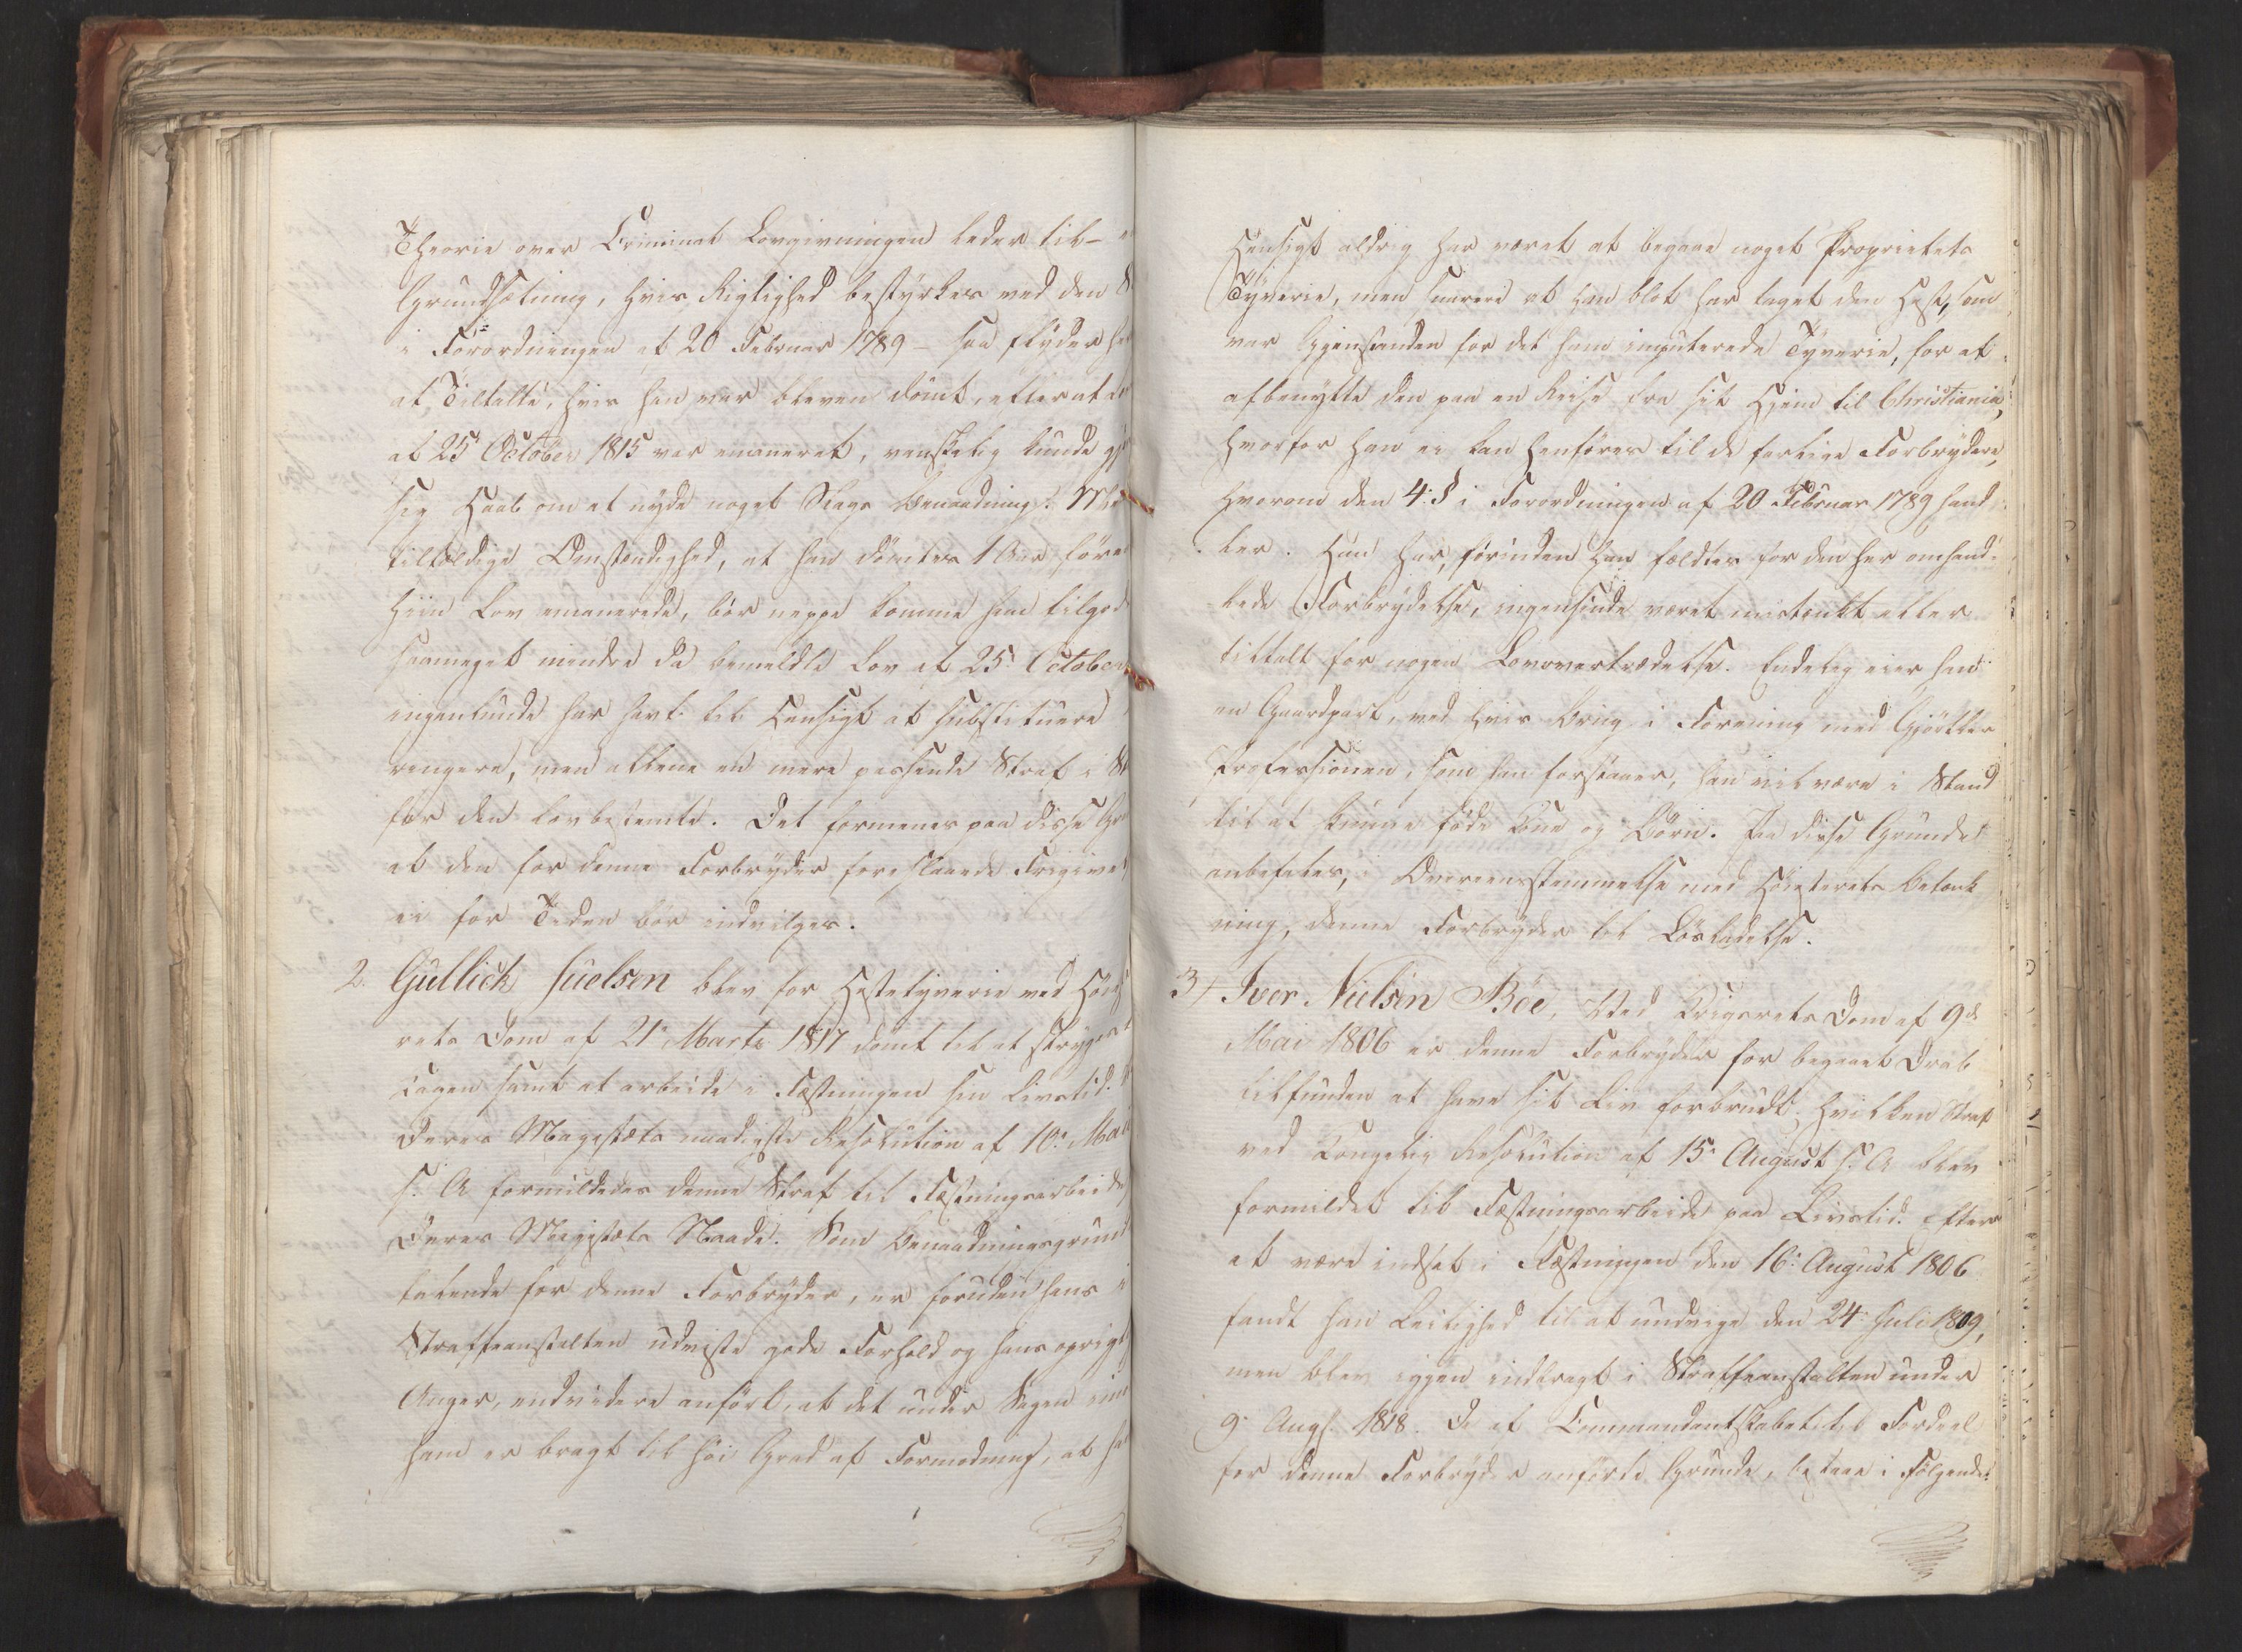 Theorie over Criminal Lovgivningen leder til –
Grundsætning, hvis Rigtighed bestyrkes ved den
i Forordningen af 20 Februar 1789 – saa flyder
at Tiltalte, hvis han var bleven dömt, efterat
af 25 October 1815 var emaneret, vanskelig kunde
sig Haab om at nyde noget Slags Benaadning.
tilfældige Omstændighed, at han dömtes 1 Aar för
hiin Lov emanerede, bör neppe komme ham tilgod
saameget mindre da bemeldte Lov af 25 October
ingenlunde har havt til Hensigt at substituere
ringere, men allene en mere passende Straf i
for den lovbestemte. Det formenes paa disse
at den for denne Forbryder foreslaaede Frigivel
ei for Tiden bör indvilges.
2. Gullick Juelsen blev for Hestetyverie ved Höies
rets Dom af 21 Marts 1817 dömt til at stryges t
Kagen samt at arbeide i Fæstningen sin Livstid.
Deres Majestæts naadigste Resolution af 10 Mai
s. A formildedes denne Straf til Fæstningsarbeide
Deres Majestæts Naade. Som Benaadningsgrund
talende for denne Forbryder, er foruden hans i
Straffeanstalten udviste gode Forhold og hans oprigt
Anger, endvidere anfört, at det under Sagen
ham er bragt til höi Grad af Formodning, at ha
Hensigt aldrig har været at begaae noget Proprietets
Tyverie, men snarere at han blot har taget den Hest, som
var Gjenstanden for det ham imputerede Tyverie, for at
afbenytte den paa en Reise fra sit Hjem til Christiania,
hvorfor han ei kan henföres til de Forbrydere,
hvorom den 4. § i Forordningen af 20 Februar 1789 hand
ler. Han har, förinden han fældtes for den her omhand
lede Forbrydelse, ingensinde været mistænkt eller
tiltalt for nogen Lovovertrædelse. Endelig eier han
en Gaardpart, ved hvis Brug i Forening med Gjörtler
Professionen, som han forstaaer, han vil være i Stand
til at kunne föde Kone og Börn. Paa disse Grunde
anbefales, i Overeensstemmelse med Höiesterets Betænk
ning, denne Forbryder til Lösladelse.
3) Iver Nielsen Böe, Ved Krigsrets Dom af 9de
Mai 1806 er denne Forbryder for begaaet Drab
tilfunden at have sit Liv forbrudt, hvilken Straf
ved Kongelig Resolution af 15 August s. A blev
formildet til Fæstningsarbeide paa Livstid. Efter
at være indsat i Fæstningen den 16. August 1806
fandt han Leilighed til at undvige den 24 Juli 1809,
men blev igjen indbragt i Straffeanstalten under
9 Augs. 1818. De af Commandantskabet til Fordeel
for denne Forbryder anförte Grunde, bestaae i Fölgende: